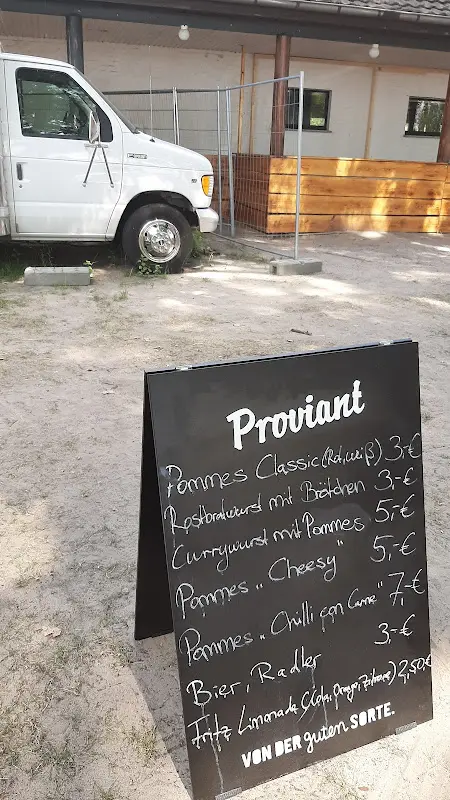 Proviant
Pommes Classic (Rot, weiß) 3,-€
Rostbratwurst mit Brötchen 3,-€
Currywurst mit Pommes 5,-€
Pommes „Cheesy" 5,-€
Pommes „Chilli con Carne" 7,-€
Bier, Radler 3,-€
Fritz Limonade (Cola, Orange, Zitrone) 2,50€
VON DER guten SORTE.